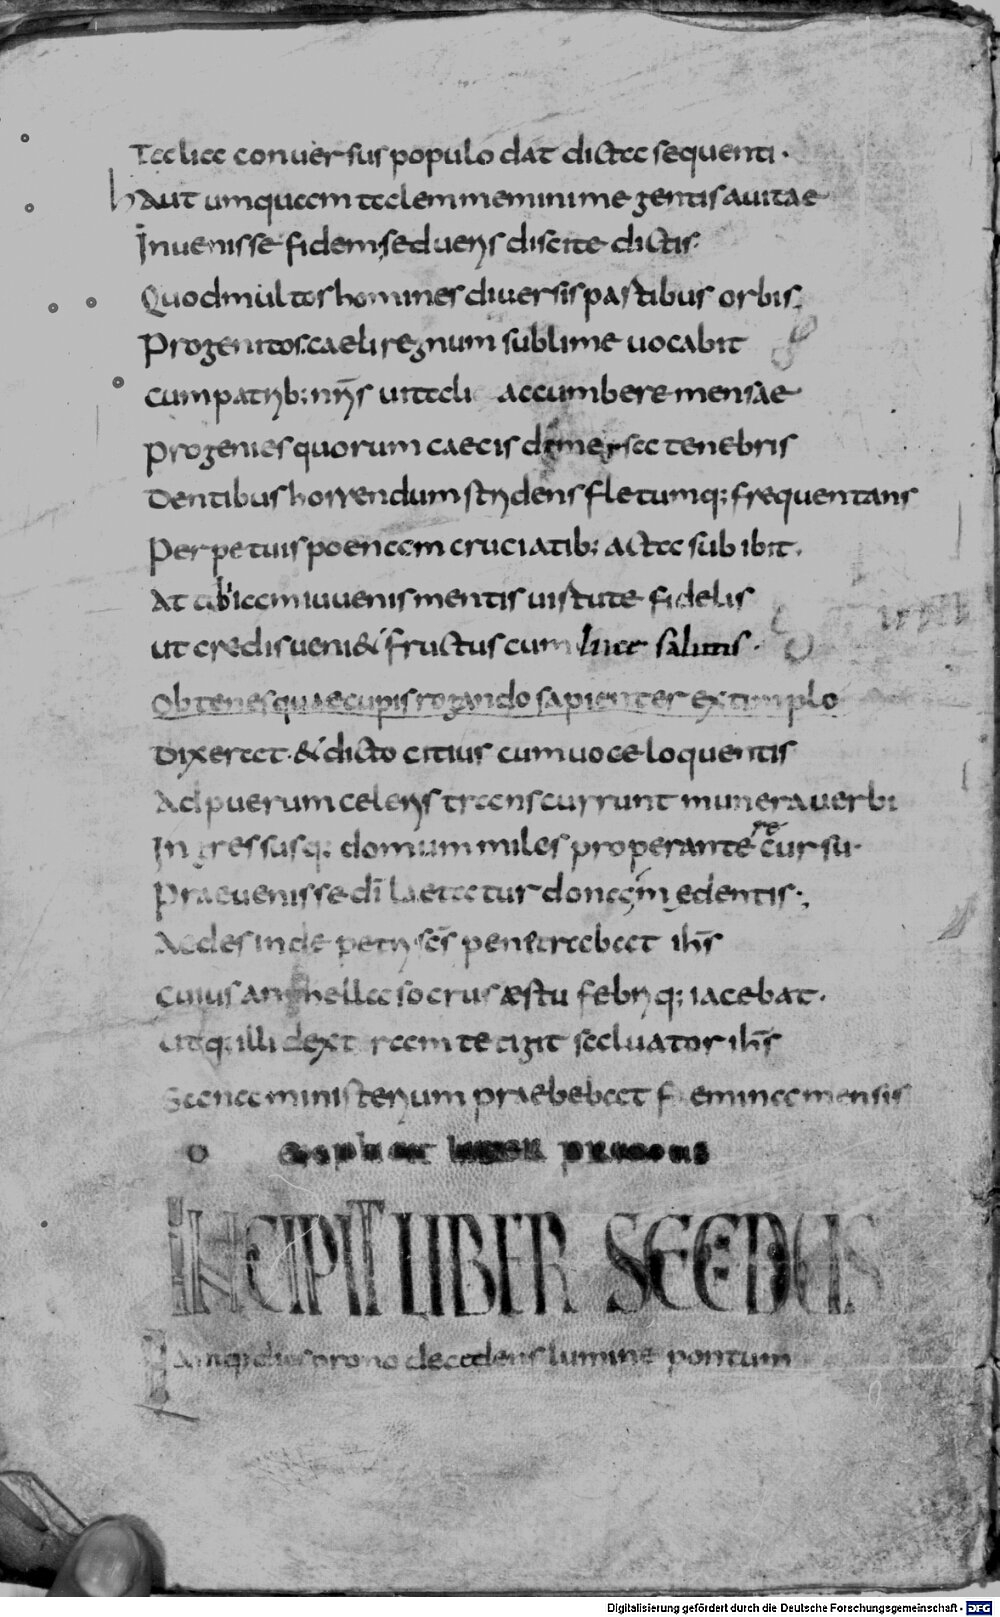 Talia conuersus populo dat dicta sequenti.
haut umquam talem memini me gentis auitae
Inuenisse fidem; sed ueris discite dictis.
Quod multos homines diuersis partibus orbis.
Progenitos. caeli regnum sublime uocabit
cum patrib; nr̄is uitali accumbere mensae
progenies quorum caecis demersa tenebris
Dentibus horrendum stridens fletumq; frequentans
Perpetuis poenam cruciatib; acta subibit.
At tibi iam iuuenis mentis uirtute fidelis
ut credis ueni& fructus cum luce salutis.
Obtenes quae cupis rogando sapienter extimplo
Dixerat. & dicto citius cum uoce loquentis
Ad puerum celeris trans currunt munera uerbi
Ingressusq; domum miles properante recursu.
Praeuenisse dī laetatur donam medentis;
Aedes inde petri sc̄s penetrabat ih̄s
Cuius anhella socrus æstu febriq; iacebat.
utq; illi dextram tetigit saluator ih̄s
Sana ministerium praebebat feminea mensis
explicit liber primus
INCIPIT LIBER SECEDUS
Iamq; dies prono decedens lumine pontum
Digitalisierung gefördert durch die Deutsche Forschungsgemeinschaft - DFG